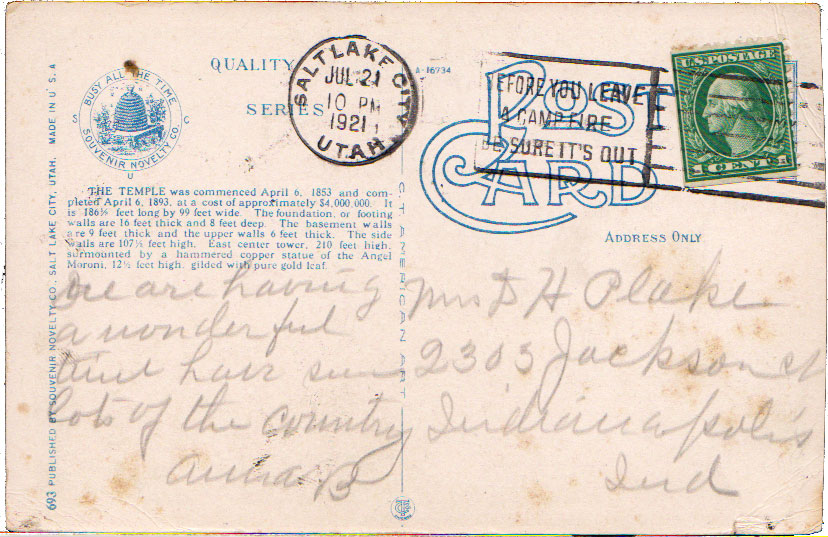 BUSY ALL THE TIME
SOUVENIR NOVELTY CO.
S C
U
QUALITY
SERIES
A-16734
SALT LAKE CITY
JUL 21
10 PM
1921
UTAH
BEFORE YOU LEAVE
A CAMP FIRE
BE SURE IT'S OUT
U.S. POSTAGE
1 CENT 1
POST
CARD
ADDRESS ONLY
THE TEMPLE was commenced April 6, 1853 and com-
pleted April 6, 1893, at a cost of approximately $4,000,000. It
is 186½ feet long by 99 feet wide. The foundation, or footing
walls are 16 feet thick and 8 feet deep. The basement walls
are 9 feet thick and the upper walls 6 feet thick. The side
walls are 107½ feet high. East center tower, 210 feet high,
surmounted by a hammered copper statue of the Angel
Moroni, 12½ feet high, gilded with pure gold leaf.
We are having
a wonderful
time have seen
lots of the country
Anna B
Mrs D H Plake
2303 Jackson st
Indianapolis
Ind
C T AMERICAN ART
693 PUBLISHED BY SOUVENIR NOVELTY CO., SALT LAKE CITY, UTAH. MADE IN U.S.A